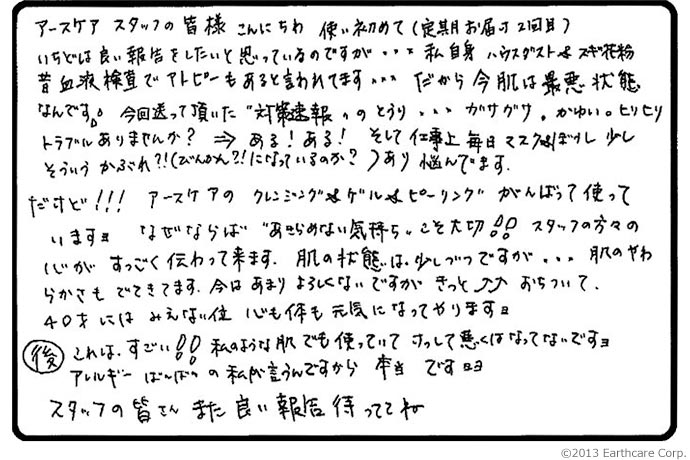 アースケア スタッフの皆様 こんにちわ 使い初めて(定期お届け2回目)
いちどは良い報告をしたいと思っているのですが・・・私自身 ハウスダスト& スギ花粉
昔血液検査でアトピーもあると言われてます・・・ だから今肌は最悪状態
なんです。今回送って頂いた"対策速報"のとうり・・・ガサガサ。かゆい。ヒリヒリ
トラブルありませんか? ⇒ ある!ある! そして仕事上毎日マスク&ぼうし 少し
そういうかぶれ?!(びんかん?!になっているのか?)あり悩んでます。
だけど!!! アースケアの クレンジング&ゲル&ピーリング がんばって使って
います∃ なぜならば "あきらめない気持ち"こそ大切!! スタッフの方々の
心が すっごく伝わって来ます。肌の状態は、少しづつですが・・・肌のやわ
らかさも でてきてます。今はあまりよろしくないですが きっと⤴⤴おちついて、
40才には みえない位 心も体も元気になってやります∃
後 これは、すごい!! 私のような肌でも使っていて けっして悪くはなってないです∃
アレルギー ばんばんの私が言うんですから 本当 です∃∃
スタッフの皆さん また良い報告待っててね
©2013 Earthcare Corp.